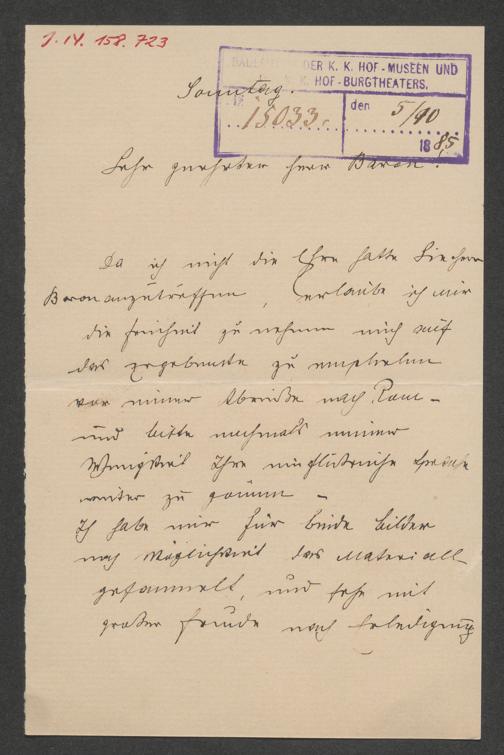 J.N. 158.723
BAULEITUNG DER K. K. HOF-MUSEEN UND
K. K. HOF-BURGTHEATERS.
Z. 15033. den 5/10
1885
Sonntag.
Sehr geehrter Herr Baron!
Da ich nicht die Ehre hatte Sie Herr
Baron anzutreffen, erlaube ich mir
die Freiheit zu nehmen mich auf
das ergebenste zu empfehlen
vor meiner Abreiße nach Rom –
und bitte nochmals meiner
Wenigkeit Ihre einflußreiche
weiter zu gönnen –
Ich habe mir für beide Bilder
nach Möglichkeit das Materiall
gesammelt, und sehe mit
großer Freude nach Erledigung